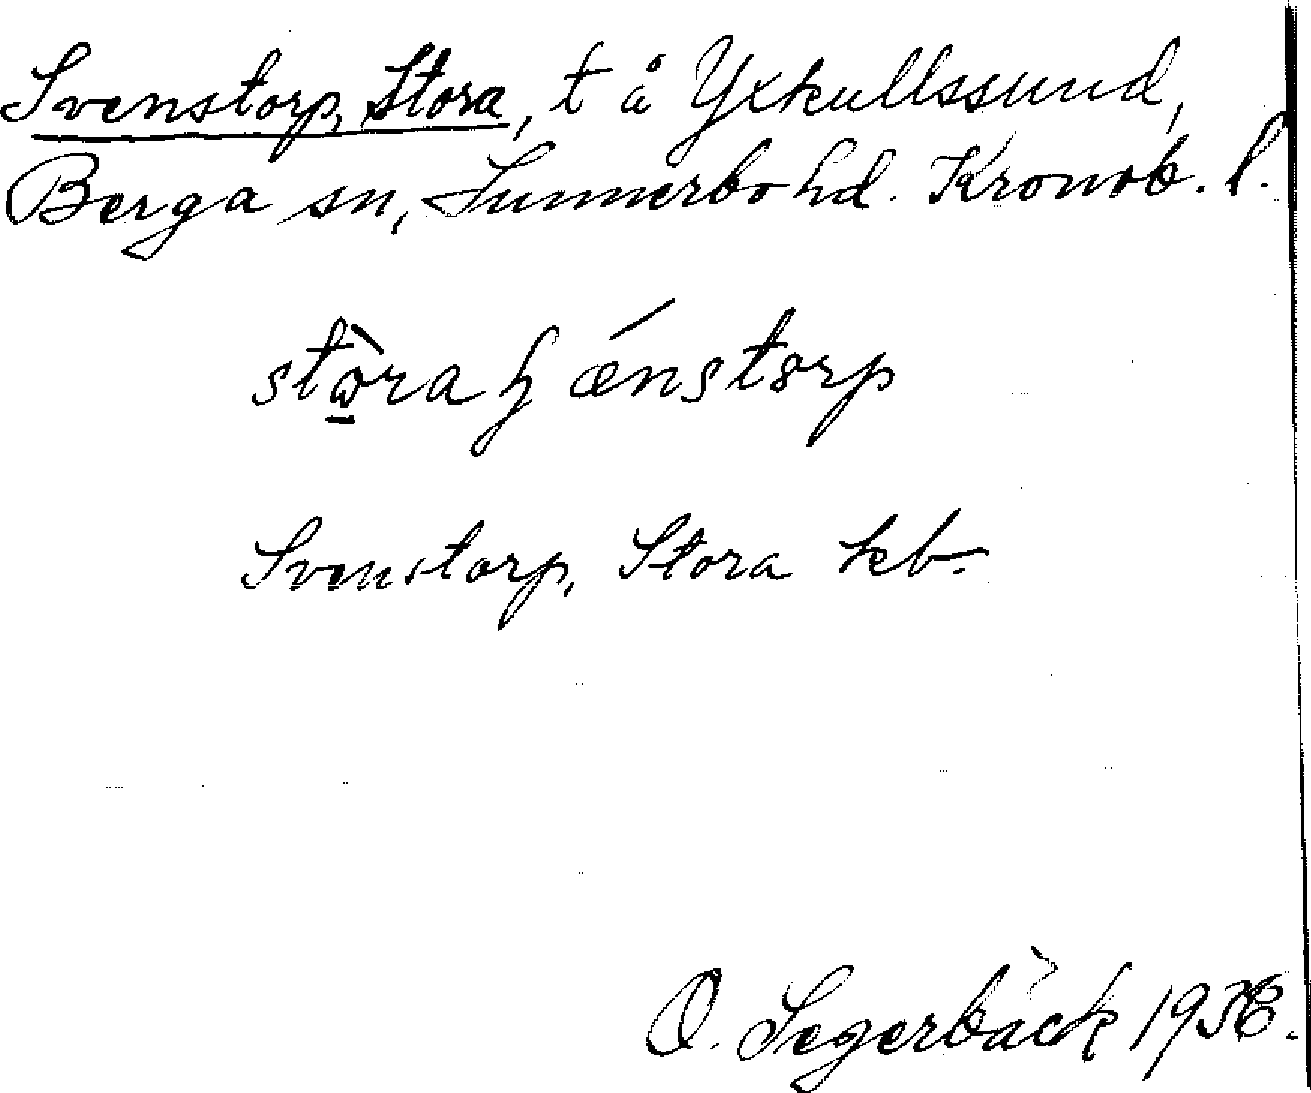 Svenstorp, Stora, t å Yxkullssund,
Berga sn, Sunnerbo hd. Kronob. l.
stòra ɧ ǽnstorp
Svenstorp, Stora kb.
O. Segerbäck 1936.